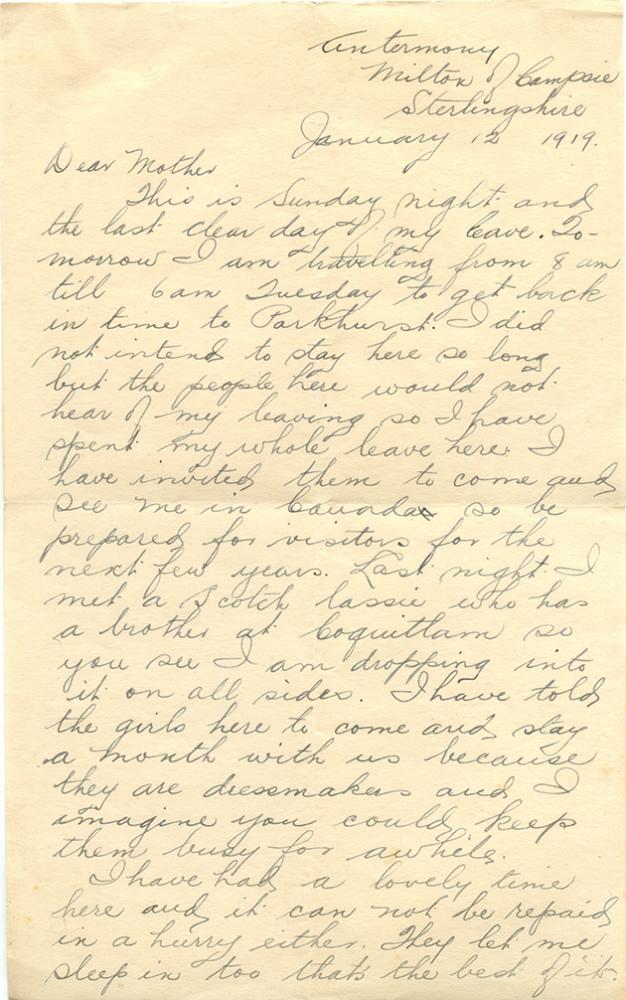 Antermony
Milton of Campsie
Sterlingshire
January 12 1919.
Dear Mother
This is Sunday night and
the last clear day of my leave. To-
morrow I am travelling from 8 am
till 6 am Tuesday to get back
in time to Parkhurst. I did
not intend to stay here so long
but the people here would not
hear of my leaving so I have
spent my whole leave here. I
have invited them to come and
see me in Canada so be
prepared for visitors for the
next few years. Last night I
met a Scotch lassie who has
a brother at Coquitlam so
you see I am dropping into
it on all sides. I have told
the girls here to come and stay
a month with us because
they are dressmakers and I
imagine you could keep
them busy for awhile.
I have had a lovely time
here and it can not be repaid
in a hurry either. They let me
sleep in too that's the best of it.